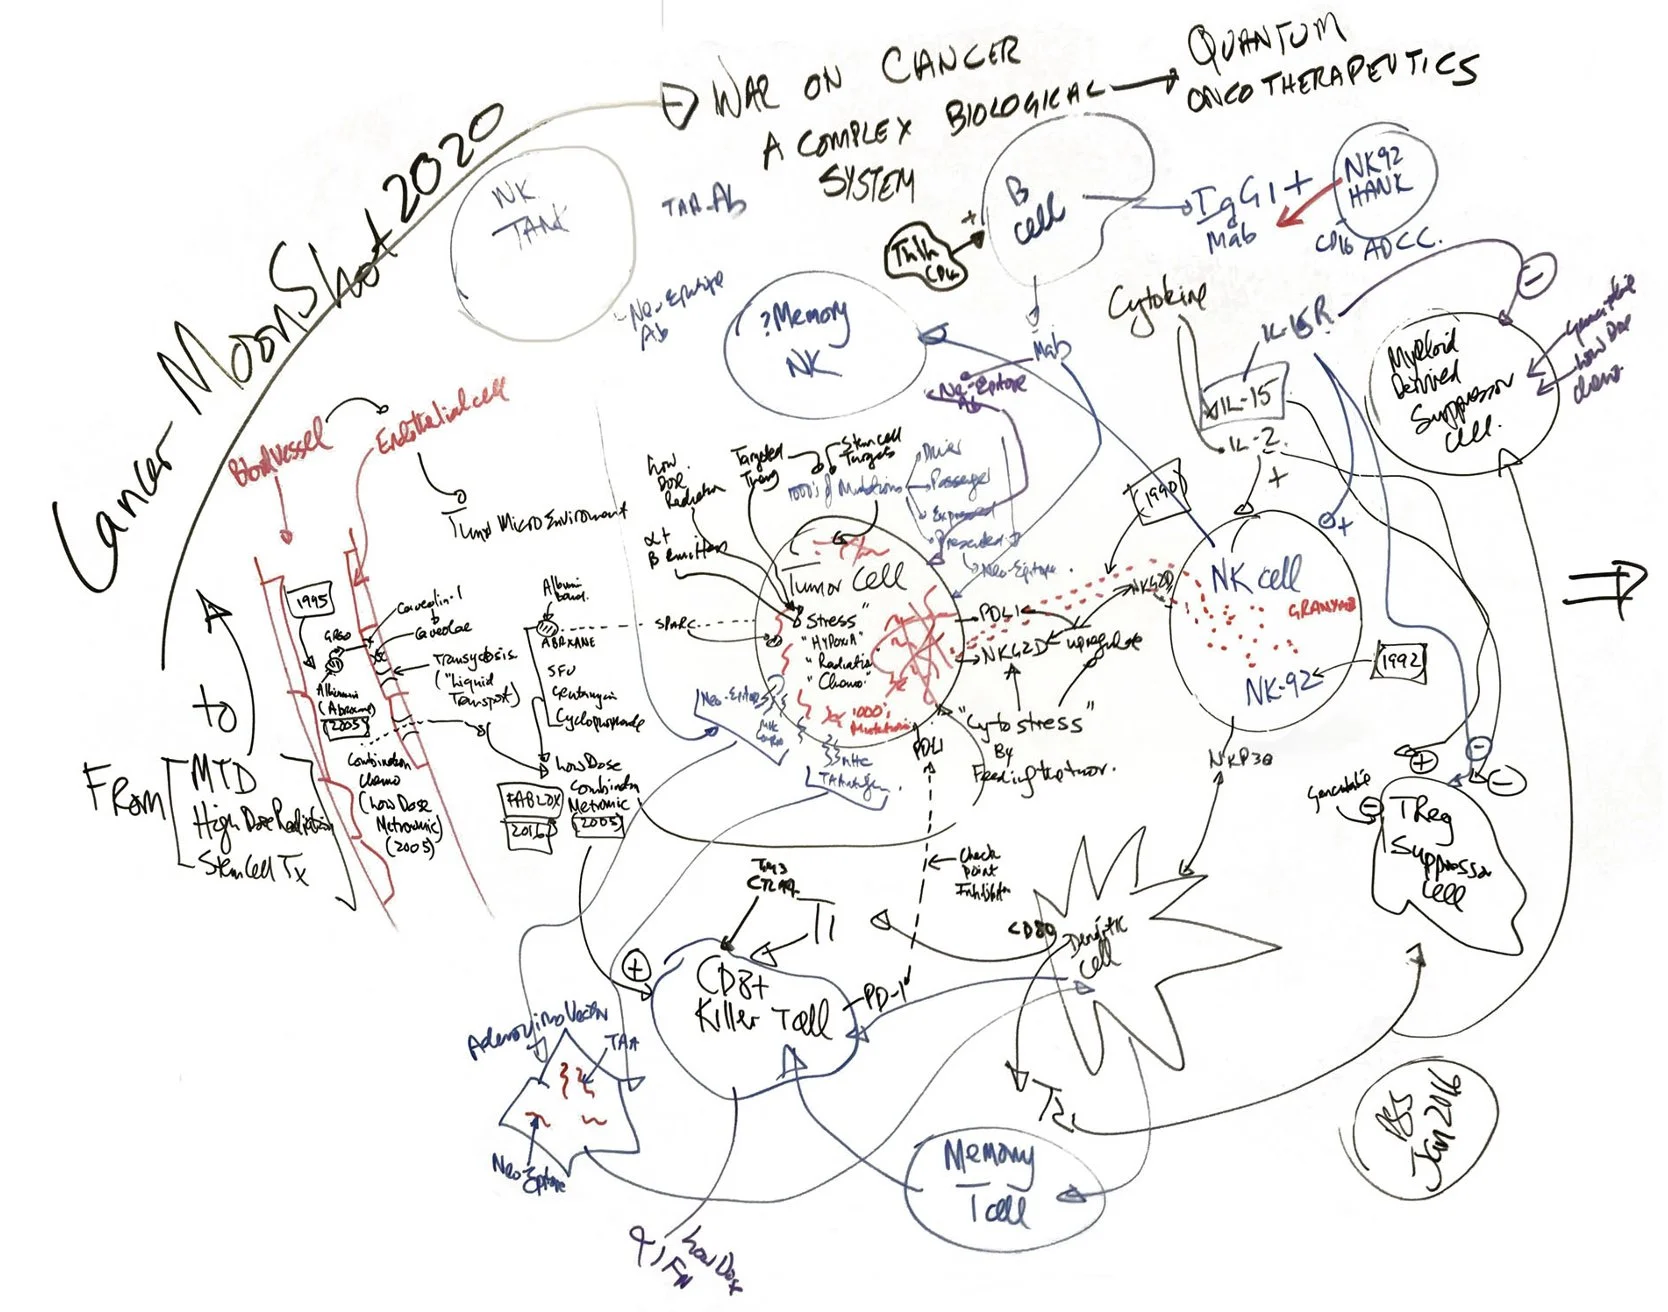 Cancer MoonShot 2020
WAR ON CANCER
A COMPLEX BIOLOGICAL
SYSTEM
QUANTUM
ONCOTHERAPEUTICS
NK
TANK
TAA-Ab
Neo-Epitope
Ab
?Memory
NK
B
cell
+
IgG1 +
Mab
NK92
HANK
CD16 ADCC.
Mab
Neo-Epitope
Ab
Cytokine
IL-15R
IL-15
IL-2
+
Myeloid
Derived
Suppressor
Cell.
Low Dose
Blood vessel
Endothelial cell
Tumor MicroEnvironment
1995
Caveolin-1
Caveolae
GP60
Transcytosis
("Liquid
Transport)
Albumin
(Abraxane)
2005
Combination
Chemo
(Low Dose
Metronomic)
(2005)
Albumin
bound
ABRAXANE
5FU
Cyclophosphamide
SPARC
Low Dose
Combination
Metronomic
(2005)
2016
Low
Dose
Radiation
α +
B Emitters
Targeted
Stem cell
Targets
1000's of Mutations
Driver
Passenger
Expressed
Presented
Neo-Epitope
Tumor Cell
"Stress"
"Hypoxia"
"Radiation"
"Chemo"
1000's
Mutations
PDL1
NKG2D
upregulate
NKG2D
1990
"Cytostress"
By
Feeding the tumor.
PDL1
Neo-Epitope
MHC
NK cell
GRANYMB
NK-92
1992
NKP30
From
MTD
High Dose Radiation
Stem Cell Tx
to
Check
point
Inhibitor
CTLA4
T1
CD80
Dendritic
cell
CD8+
Killer T cell
PD-1
TReg
Suppressor
Cell
Adenovirus Vector
TAA
Neo-Epitope
T2
Memory
T cell
Low Dose
Jan 2016